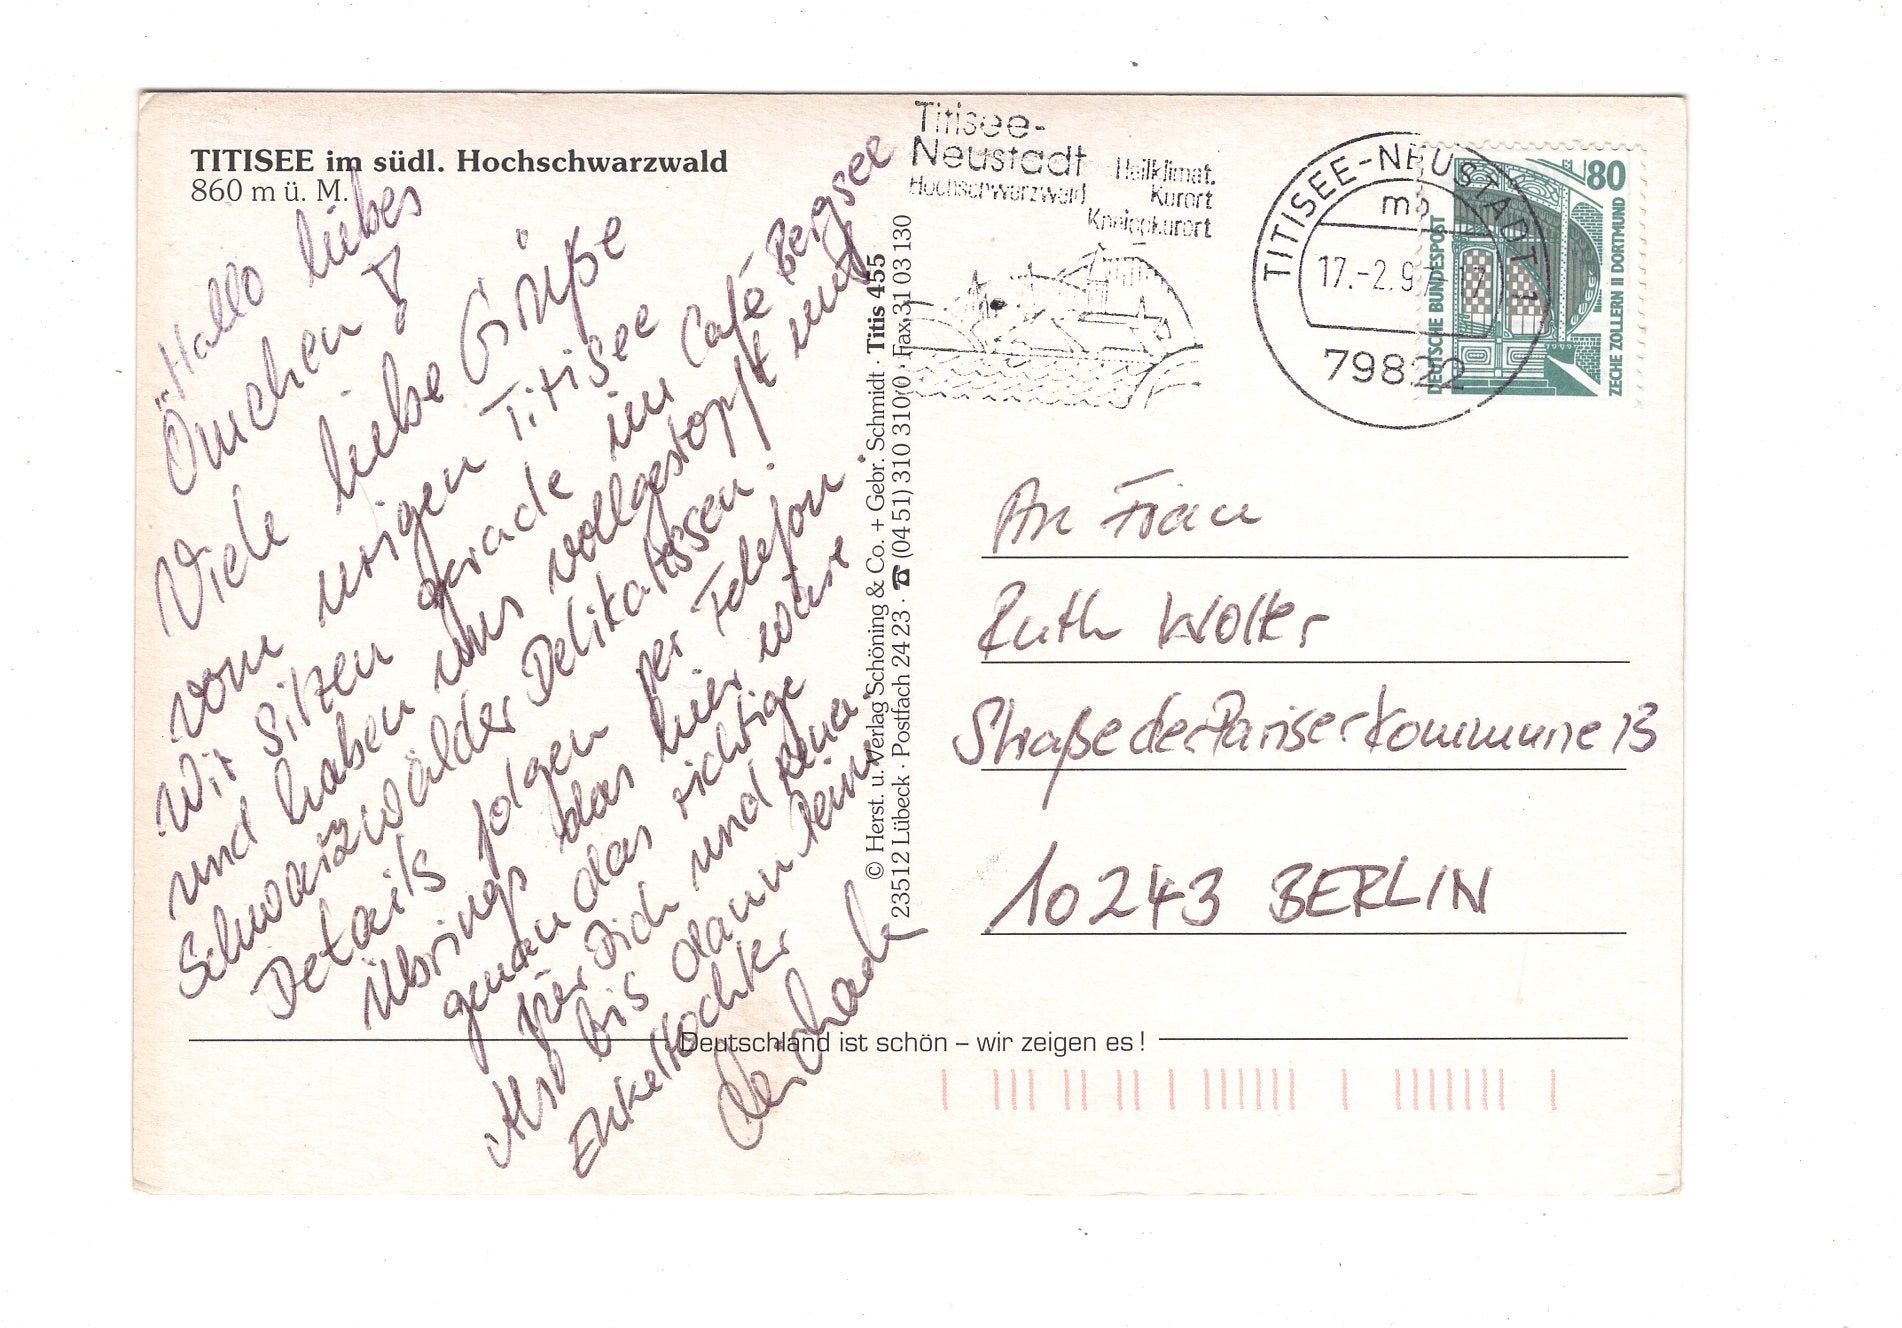 TITISEE im südl. Hochschwarzwald
860 m ü. M.
Hallo liebes
Ömchen!
Viele liebe Grüße
vom urigen Titisee
Wir sitzen gerade im Café Bergsee
und haben uns vollgestopft mit
Schwarzwälder Delikatessen.
Details folgen per Telefon.
Übrings das hier wäre
genau das richtige
für Dich und Rena.
Also bis dann Deine
Enkeltochter
© Herst. u. Verlag Schöning & Co. + Gebr. Schmidt · Titis 455
23512 Lübeck · Postfach 24 23 · ☎ (04 51) 310 31 00 · Fax 31 03 130
Titisee-
Neustadt
Hochschwarzwald
Heilklimat.
Kurort
Kneippkurort
TITISEE-NEUSTADT 1
mb
17.-2.97-17
79822
80
DEUTSCHE BUNDESPOST
ZECHE ZOLLERN II DORTMUND
An Frau
Ruth Wolter
Straße der Pariser Kommune 13
10243 BERLIN
Deutschland ist schön – wir zeigen es!